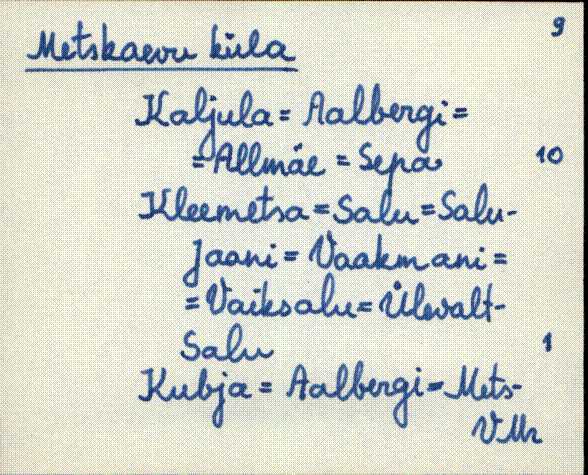 9
Metskaevu küla
Kaljula = Aalbergi =
= Allmäe = Sepa
10
Kleemetsa = Salu = Salu-
Jaani = Vaakmani =
= Vaiksalu = Ülevalt-
Salu
1
Kubja = Aalbergi = Mets-
VMr